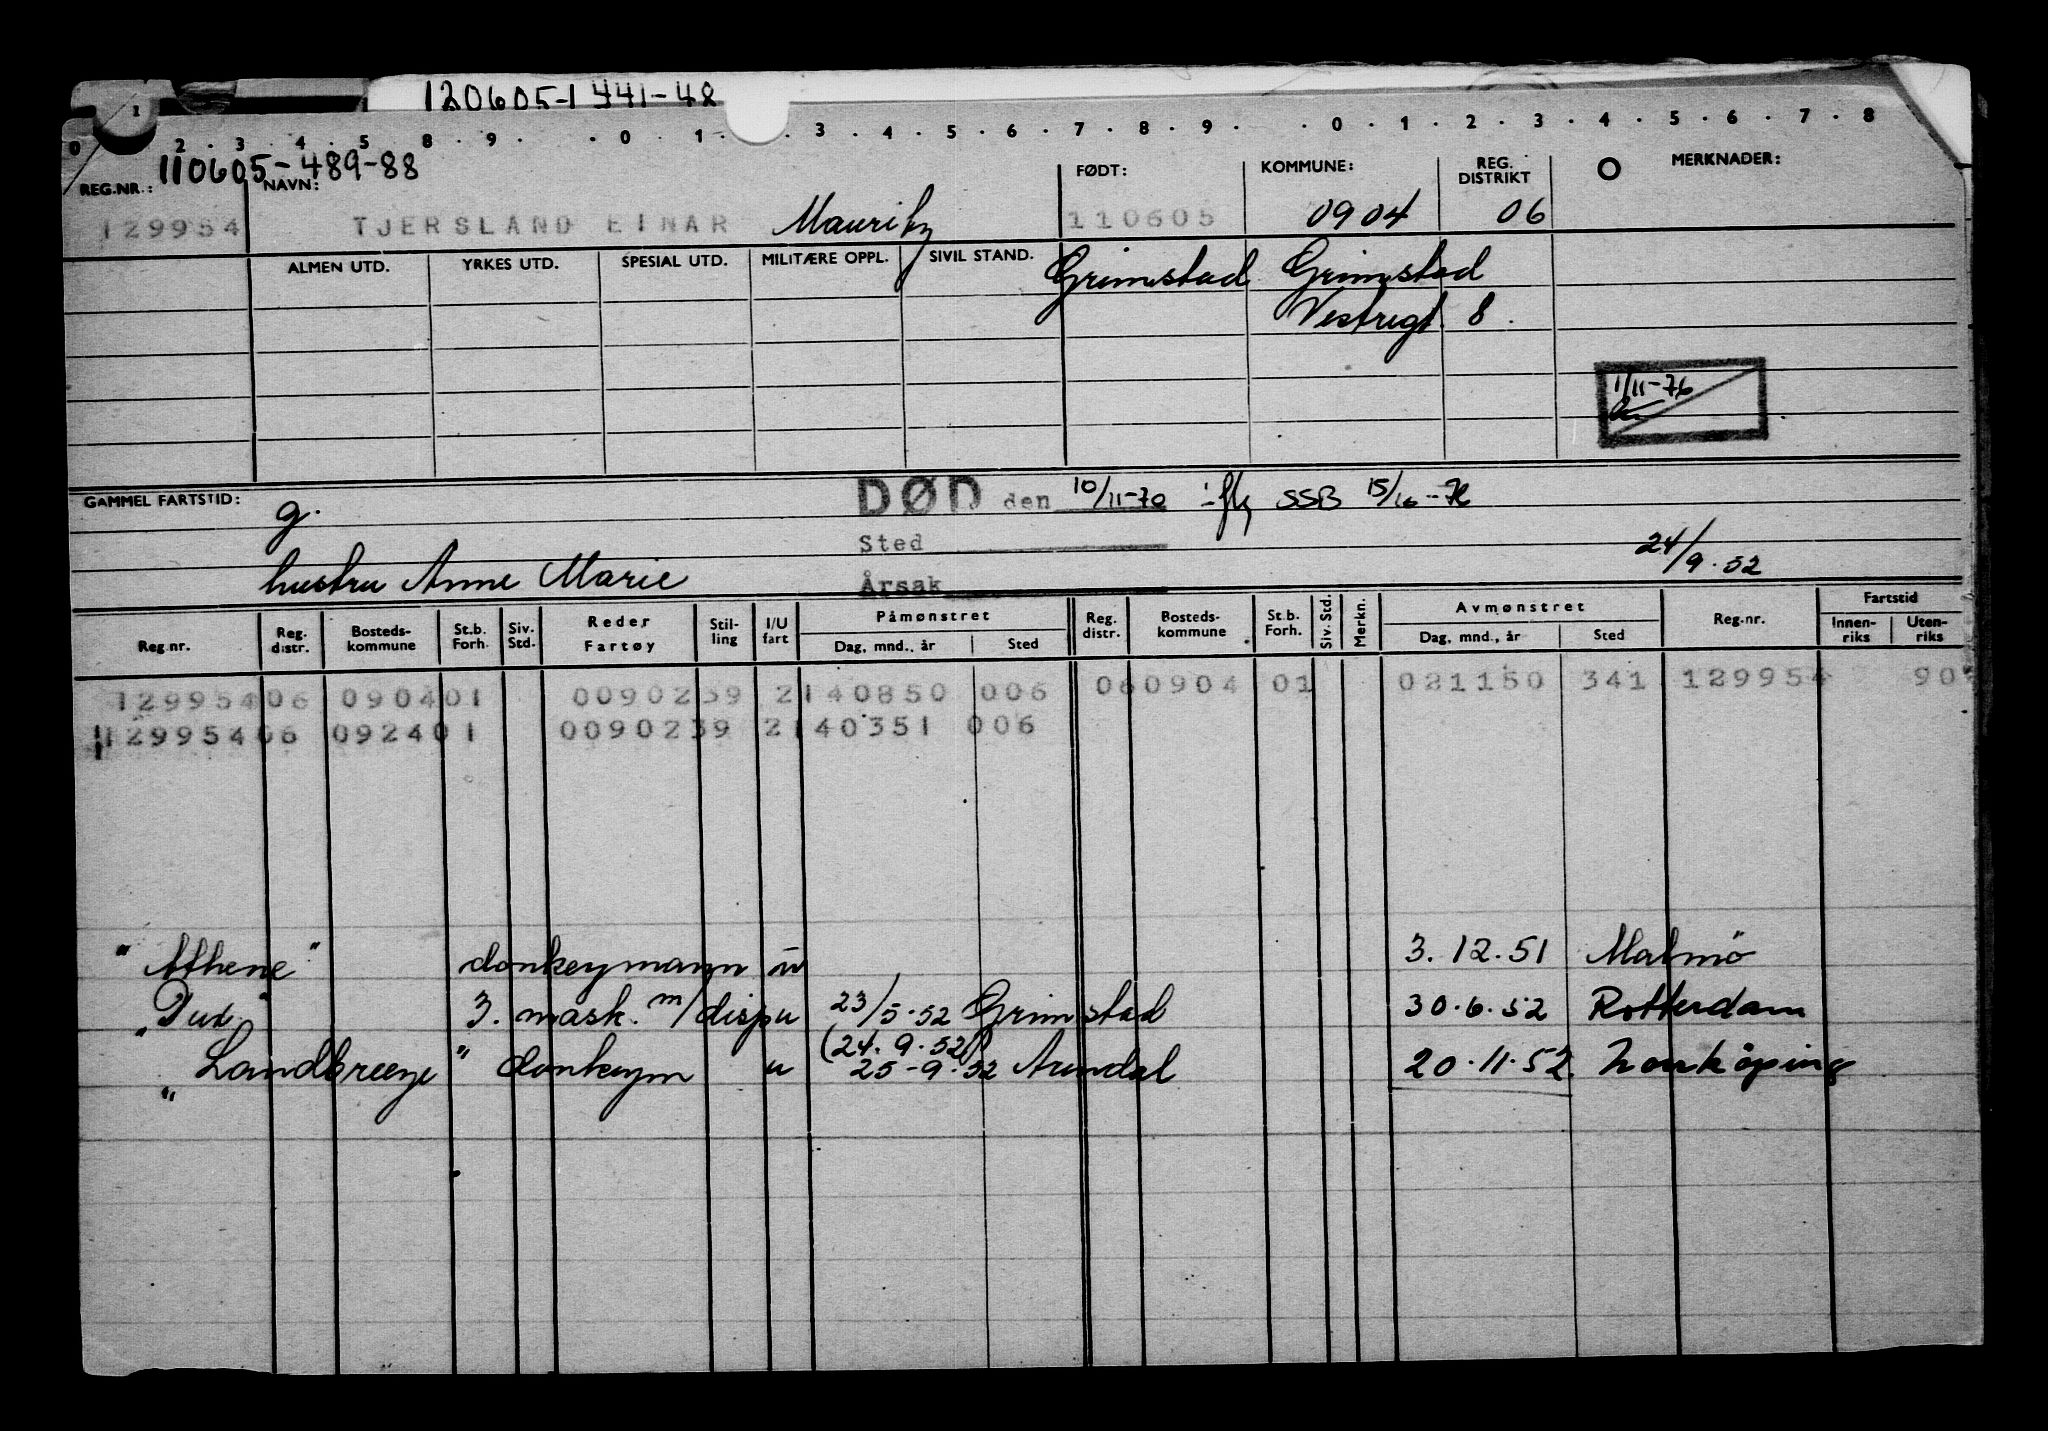 120605-1 441-48
1
0 2 . 3 . 4 . 5 8 . 9 . . 0 . 1 . . 3 . 4 . 5 . 6 . 7 . 8 . 9 . . 0 . 1 . 2 . 3 . 4 . 5 . 6 . 7 . 8
110605-489-88
REG.NR.: NAVN: FØDT: KOMMUNE: REG. DISTRIKT MERKNADER:
129954 TJERSLAND EINAR Mauritz 110605 0904 06
ALMEN UTD. YRKES UTD. SPESIAL UTD. MILITÆRE OPPL. SIVIL STAND. Grimstad Grimstad
Vestregt. 8.
1/11-76
GAMMEL FARTSTID: g. DØD den 10/11-70 SSB
Sted
24/9.52
hustru Anne Marie Årsak
Reg.nr. Reg. distr. Bosteds-kommune St.b. Forh. Siv. Std. Reder Fartøy Stil-ling I/U fart Påmønstret Dag, mnd., år Sted Reg. distr. Bosteds-kommune St.b. Forh. Siv. Std. Merkn. Avmønstret Dag, mnd., år Sted Reg.nr. Fartstid Innen-riks Uten-riks
129954 06 0904 01 0090239 2 140850 006 06 0904 01 021150 341 129954 90
129954 06 0924 01 0090239 2 140351 006
"Athene" donkeymann u 3.12.51 Malmö
3. mask. m/disp u 23/5.52 Grimstad 30.6.52 Rotterdam
(24.9.52)
"Landbreeze" donkeym u 25-9.52 Arendal 20.11.52